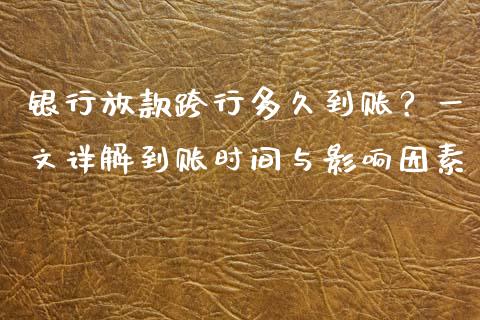 银行放款跨行多久到账？一
文详解到账时间与影响因素